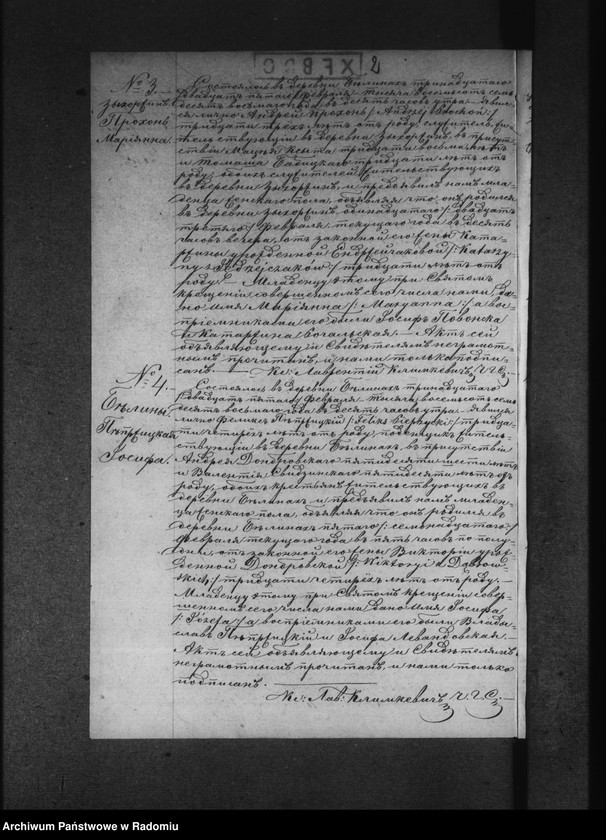 2
№ 3.
Зыхоржинъ
Прохонь
Маріянна
Состоялось въ деревни Бѣлинахъ тринадцатаго
/двадцать пятаго/ Февраля тысяча восемьсотъ семь-
десятъ восьмаго года въ десять часовъ утра. Яви-
лся лично Андрей Прохонь /Andrzej
тридцати трехъ лѣтъ отъ роду, служитель, жи-
тельствующій въ деревни Зыхоржинъ, въ присут-
ствіи тридцати восьми лѣтъ
и Томаша тридцати лѣтъ отъ
роду, обоихъ служителей жительствующихъ
въ деревни Зыхоржинъ, и предъявилъ намъ мла-
денца женскаго пола, объявляя что онъ родился
въ деревни Зыхоржинъ, одинадцатаго /двадцать
третяго/ Февраля текущаго года въ десять
часовъ вечера, отъ законной его жены Ката-
ржины урожденной Ендржейчаковой /: Katarzy-
ny z Jędrzejczaków / тридцати лѣтъ отъ
роду. Младенцу этому при Святомъ
крещеніи совершенномъ сего числа нами, да-
но имя Маріянна /: Maryanna :/ а вос-
пріемниками его были Іосифъ
и Катаржина Актъ сей
объявляющему и Свидѣтелямъ неграмот-
нымъ прочитанъ, и нами только подпи-
санъ. Кс: Лаврентій Климкевичъ Ч. Г. С.
№ 4.
Бѣлины
Пѣпржицкая
Іосифа.
Состоялось въ деревни Бѣлинахъ тринадцатаго
/двадцать пятаго/ Февраля тысяча восемьсотъ семь-
десятъ восьмаго года въ десять часовъ утра. Явился
лично Феликсъ Пѣпржицкій /: Feliks :/ тридца-
ти четырехъ лѣтъ отъ роду, поденщикъ житель-
ствующій въ деревни Бѣлинахъ, въ присутствіи
Андрея Домбровскаго пятидесяти шести лѣтъ
и Валентія пятидесяти лѣтъ отъ
роду, обоихъ крестьянъ жительствующихъ въ
деревни Бѣлинахъ, и предъявилъ намъ младен-
ца женскаго пола, объявляя что онъ родился въ
деревни Бѣлинахъ пятаго /: семнадцатаго :/
Февраля текущаго года въ пять часовъ по полу-
дни, отъ законной его жены Викторіи урож-
денной Домбровской /: Wiktoryi z Dąbrow-
skich / тридцати четырехъ лѣтъ отъ роду. —
Младенцу этому при Святомъ крещеніи совер-
шенномъ сего числа нами дано имя Іосифа
/: Józefa / а воспріемниками его были Влады-
славъ Пѣпржицкій и Іосифа Левандовская. —
Актъ сей объявляющему и Свидѣтелямъ
неграмотнымъ прочитанъ, и нами только
подписанъ.
Кс: Лав: Климкевичъ Ч. Г. С.
Archiwum Państwowe w Radomiu